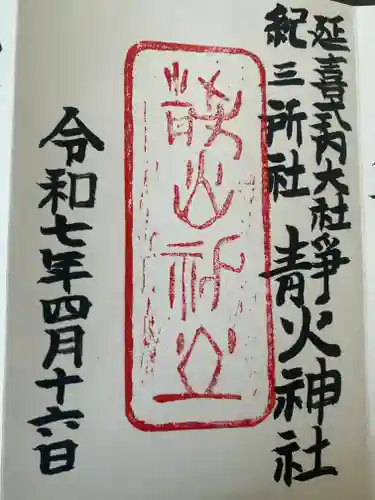 延喜式内大社
紀三所社
静火神社
静火神社
令和七年四月十六日